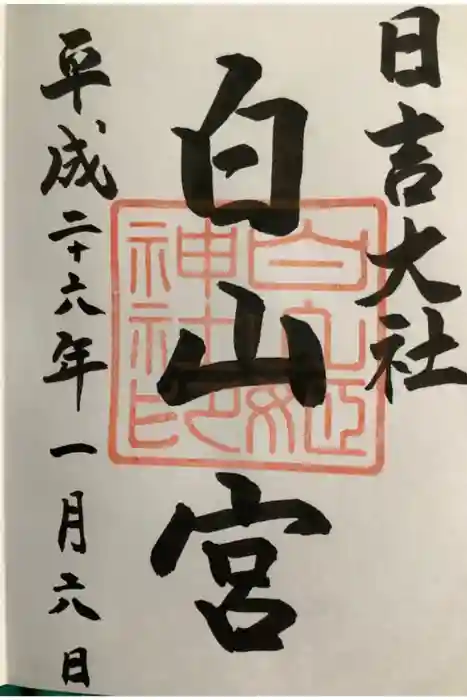 日吉大社
白山宮
白山姫
神社印
平成二十六年一月六日